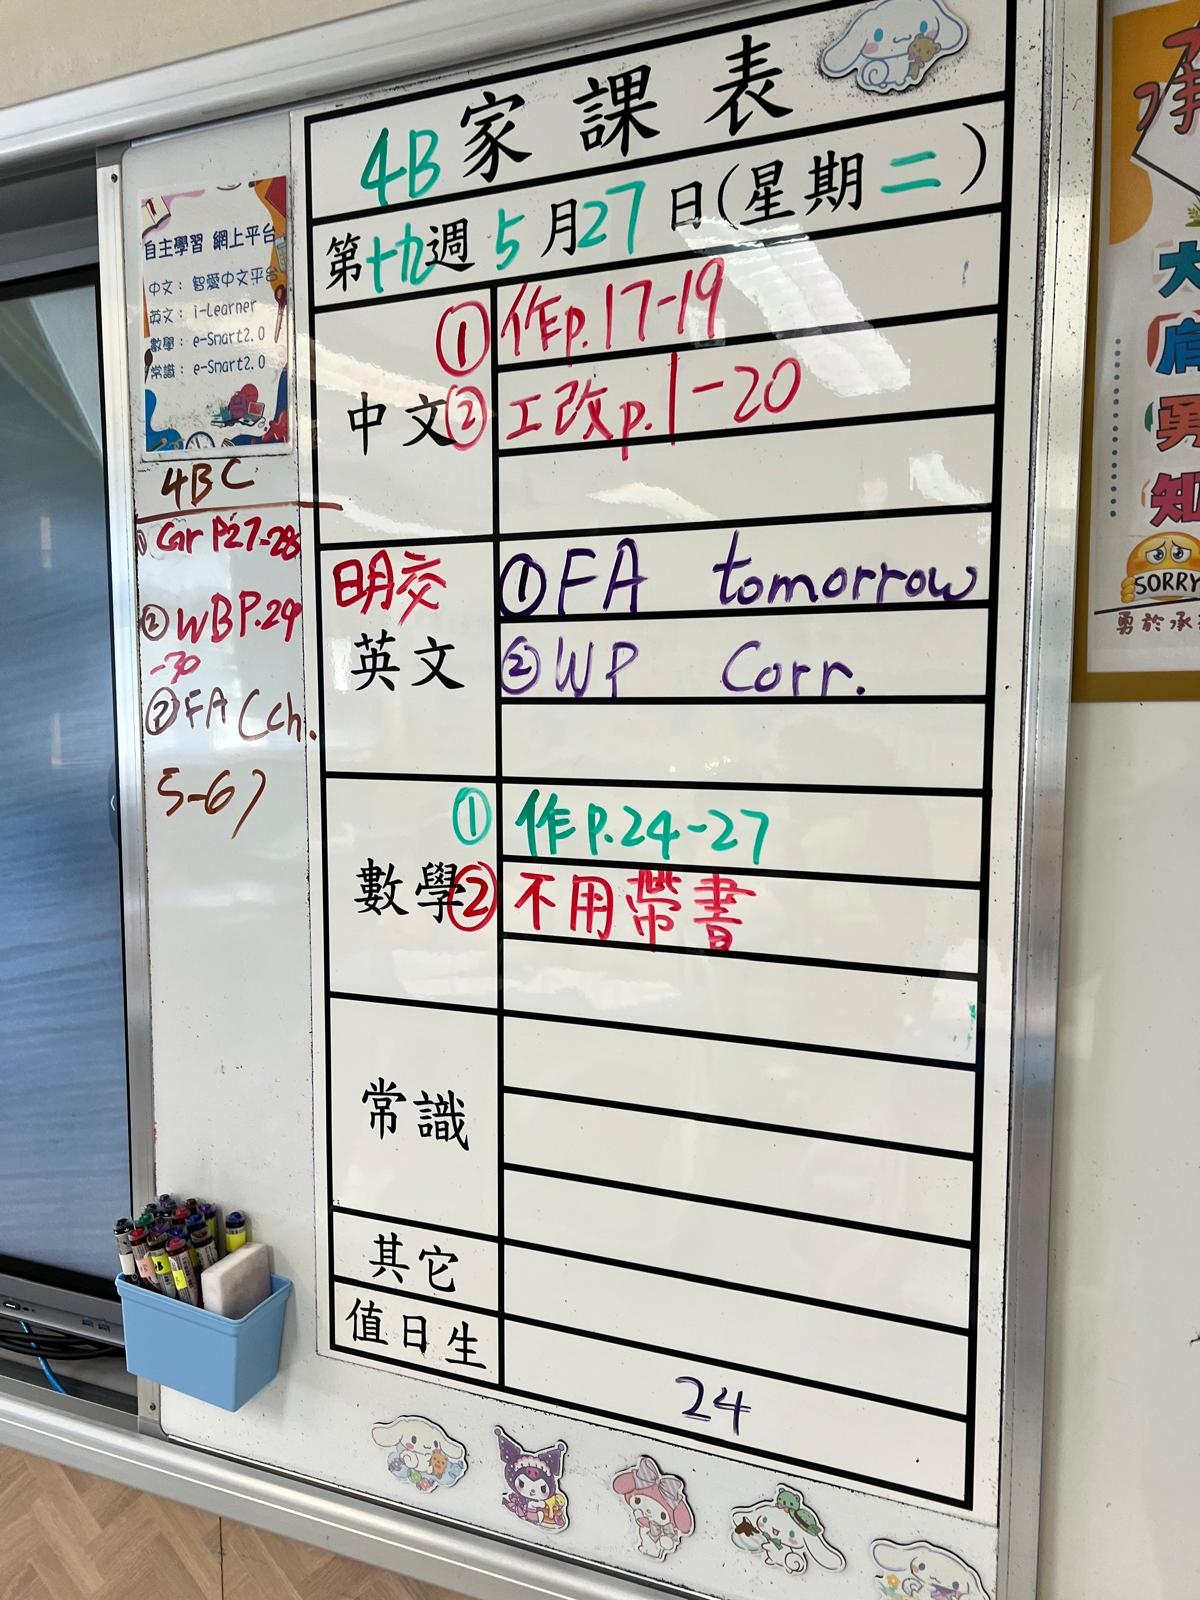 4B家課表
第十九週5月27日(星期二)
自主學習 網上平台
中文：智愛中文平台
英文：i-Learner
數學：e-Smart2.0
常識：e-Smart2.0
4BC
① Gr P27-28
② WB P.29
-30
③ FA (ch.
5-6)
中文
① 作p.17-19
② 工改p.1-20
明交
英文
① FA tomorrow
② WP Corr.
數學
① 作P.24-27
② 不用帶書
常識
其它
值日生
24
大
肩
勇
知
SORRY
勇於承